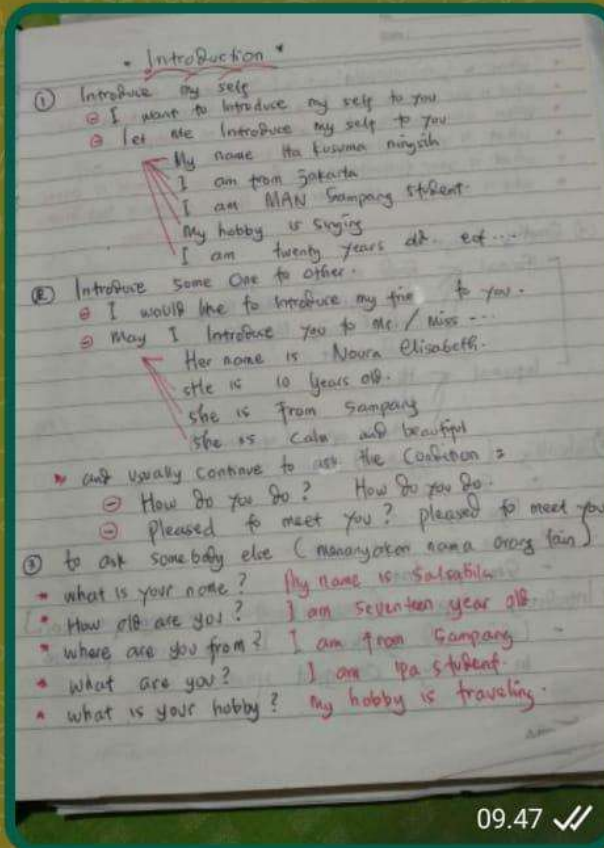 * Introduction *
① Introduce my self
⊖ I want to Introduce my self to you
⊖ let me Introduce my self to you
My name Ita kusuma ningsih
I am from Jakarta
I am MAN Sampang student.
My hobby is singing
I am twenty years old. ect ...
② Introduce some One to other.
⊖ I would like to Introduce my to you.
⊖ May I Introduce you to Mr. / Miss ---
Her name is Noura Elisabeth.
sHe is 10 years old.
she is from Sampang
she is calm and beautiful
* and usually continue to ask the Condition :
⊖ How do you do? How do you do.
⊖ pleased to meet you? pleased to meet you
③ to ask some body else (menanyakan nama orang lain)
* what is your name? My name is Salsabila
* How old are you? I am seventeen year old
* where are you from? I am from Sampang
* what are you? I am ipa student.
* what is your hobby? My hobby is traveling.
09.47